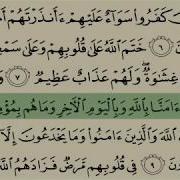 كَفَرُوا۟ سَوَآءٌ عَلَيْهِمْ ءَأَنذَرْتَهُمْ أَ
٦ خَتَمَ ٱللَّهُ عَلَىٰ قُلُوبِهِمْ وَعَلَىٰ سَمْعِ
غِشَٰوَةٌ وَلَهُمْ عَذَابٌ عَظِيمٌ ٧
ءَامَنَّا بِٱللَّهِ وَبِٱلْيَوْمِ ٱلْءَاخِرِ وَمَا هُم بِمُؤْمِ
ٱللَّهَ وَٱلَّذِينَ ءَامَنُوا۟ وَمَا يَخْدَعُونَ إِلَّآ
٩ فِى قُلُوبِهِم مَّرَضٌ فَزَادَهُمُ ٱللَّهُ